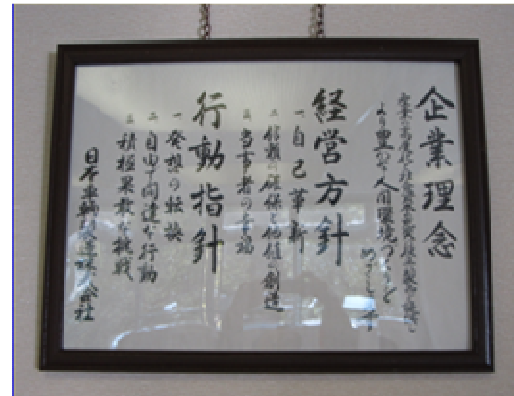 企業理念
より豊かな人間環境づくりを
めざします
経営方針
一 自己革新
二 信頼の確保と価値の創造
三 当事者の幸福
行動指針
一 発想の転換
二 自由で闊達な行動
三 積極果敢な挑戦
日本車輌製造株式会社